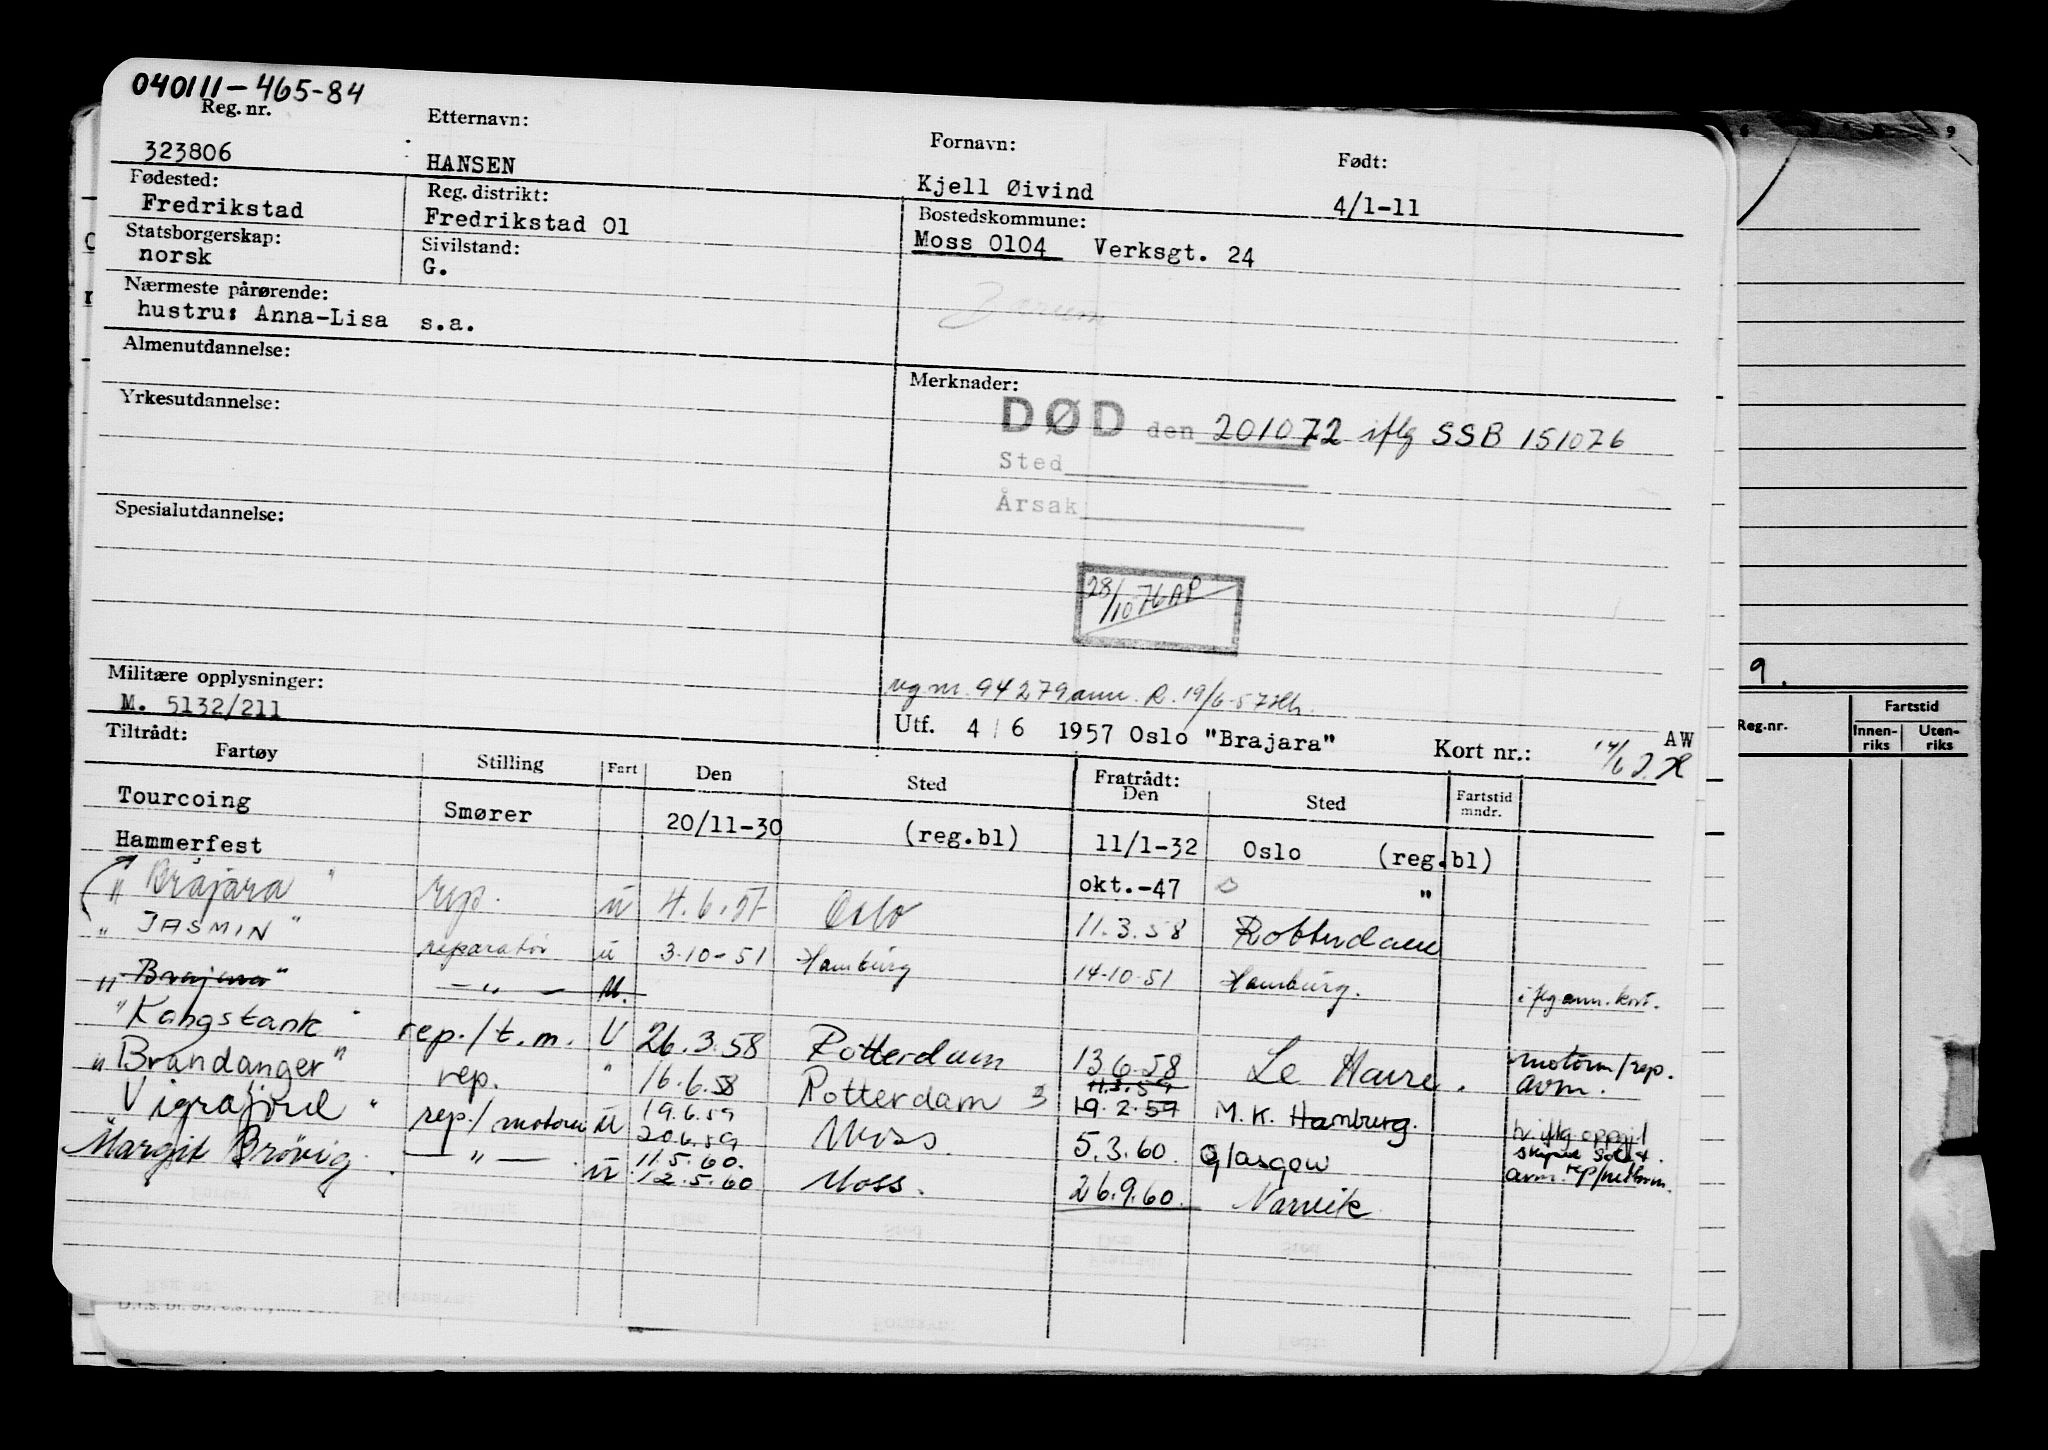 040111-465-84
Reg. nr. Etternavn: Fornavn: Født:
323806 HANSEN Kjell Øivind 4/1-11
Fødested: Reg. distrikt: Bostedskommune:
Fredrikstad Fredrikstad 01 Moss 0104 Verksgt. 24
Statsborgerskap: Sivilstand:
norsk G.
Nærmeste pårørende:
hustru: Anna-Lisa s.a.
Almenutdannelse:
Merknader:
Yrkesutdannelse:
DØD den 201072 iflg SSB 151076
Sted
Årsak
Spesialutdannelse:
28/10 76 AP
Militære opplysninger:
M. 5132/211
vg nr. 94279 ann. R. 19/6-57
Utf. 4/6 1957 Oslo "Brajara" Kort nr.: AW
14/6
Tiltrådt: Fratrådt:
Fartøy Stilling Fart Den Sted Den Sted Fartstid mndr.
Tourcoing Smører 20/11-30 (reg.bl) 11/1-32 Oslo (reg.bl)
Hammerfest okt.-47 "
" Brajara " rep. u 4.6.57 Oslo 11.3.58 Rotterdam
" JASMIN " reparatør u 3-10-51 Hamburg 14-10-51 Hamburg. iflg ann. kort.
" Brajara " - " - U.
" Kongstank " rep./t.m. U 26.3.58 Rotterdam 13.6.58 Le Havre. motorm/rep.
" Brandanger " rep. " 16.6.58 Rotterdam 3 11.3.59 avm.
19.2.59 M.K. Hamburg.
Vigrafjord " rep./motorm u 19.6.59
20.6.59 Moss. 5.3.60. Glasgow
" Margit Brøvig. - " - u 11.5.60.
12.5.60 Moss. 26.9.60. Narvik
avm. rep/
9.
Reg.nr. Fartstid
Innenriks Utenriks
9